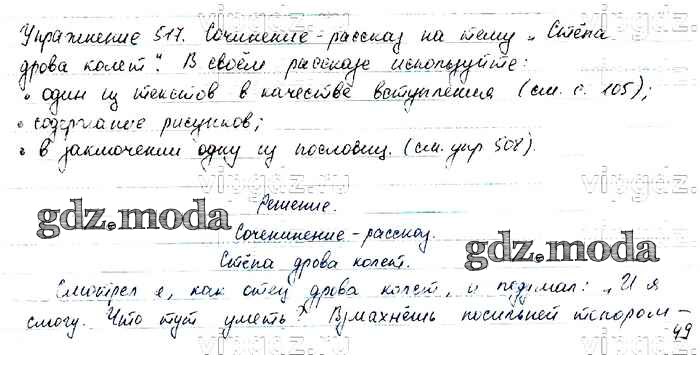 Упражнение 517. Сочинение-рассказ на тему „Стёпа
дрова колет". В своём рассказе используйте:
• один из текстов в качестве вступления (см. с. 105);
• содержание рисунков;
• в заключении одну из пословиц. (см. упр 508).
Решение.
gdz.moda
Соченинение-рассказ.
gdz.moda
Стёпа дрова колет.
Смотрел я, как отец дрова колет, и подумал: „И я
смогу. Что тут уметь? Взмахнёшь посильней топором –
49